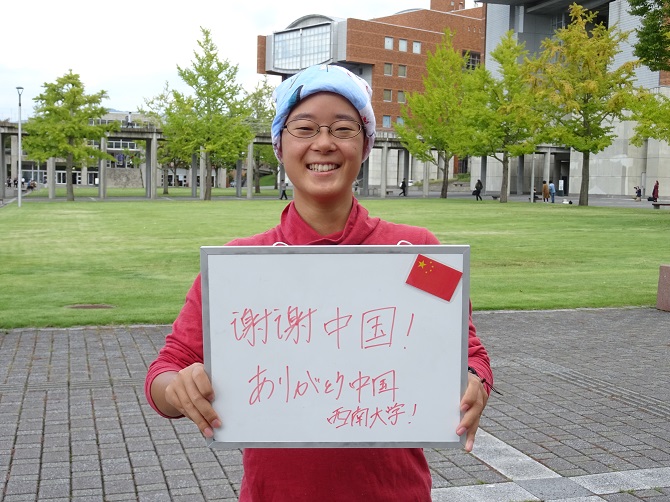 谢谢中国！
ありがとう中国
西南大学！